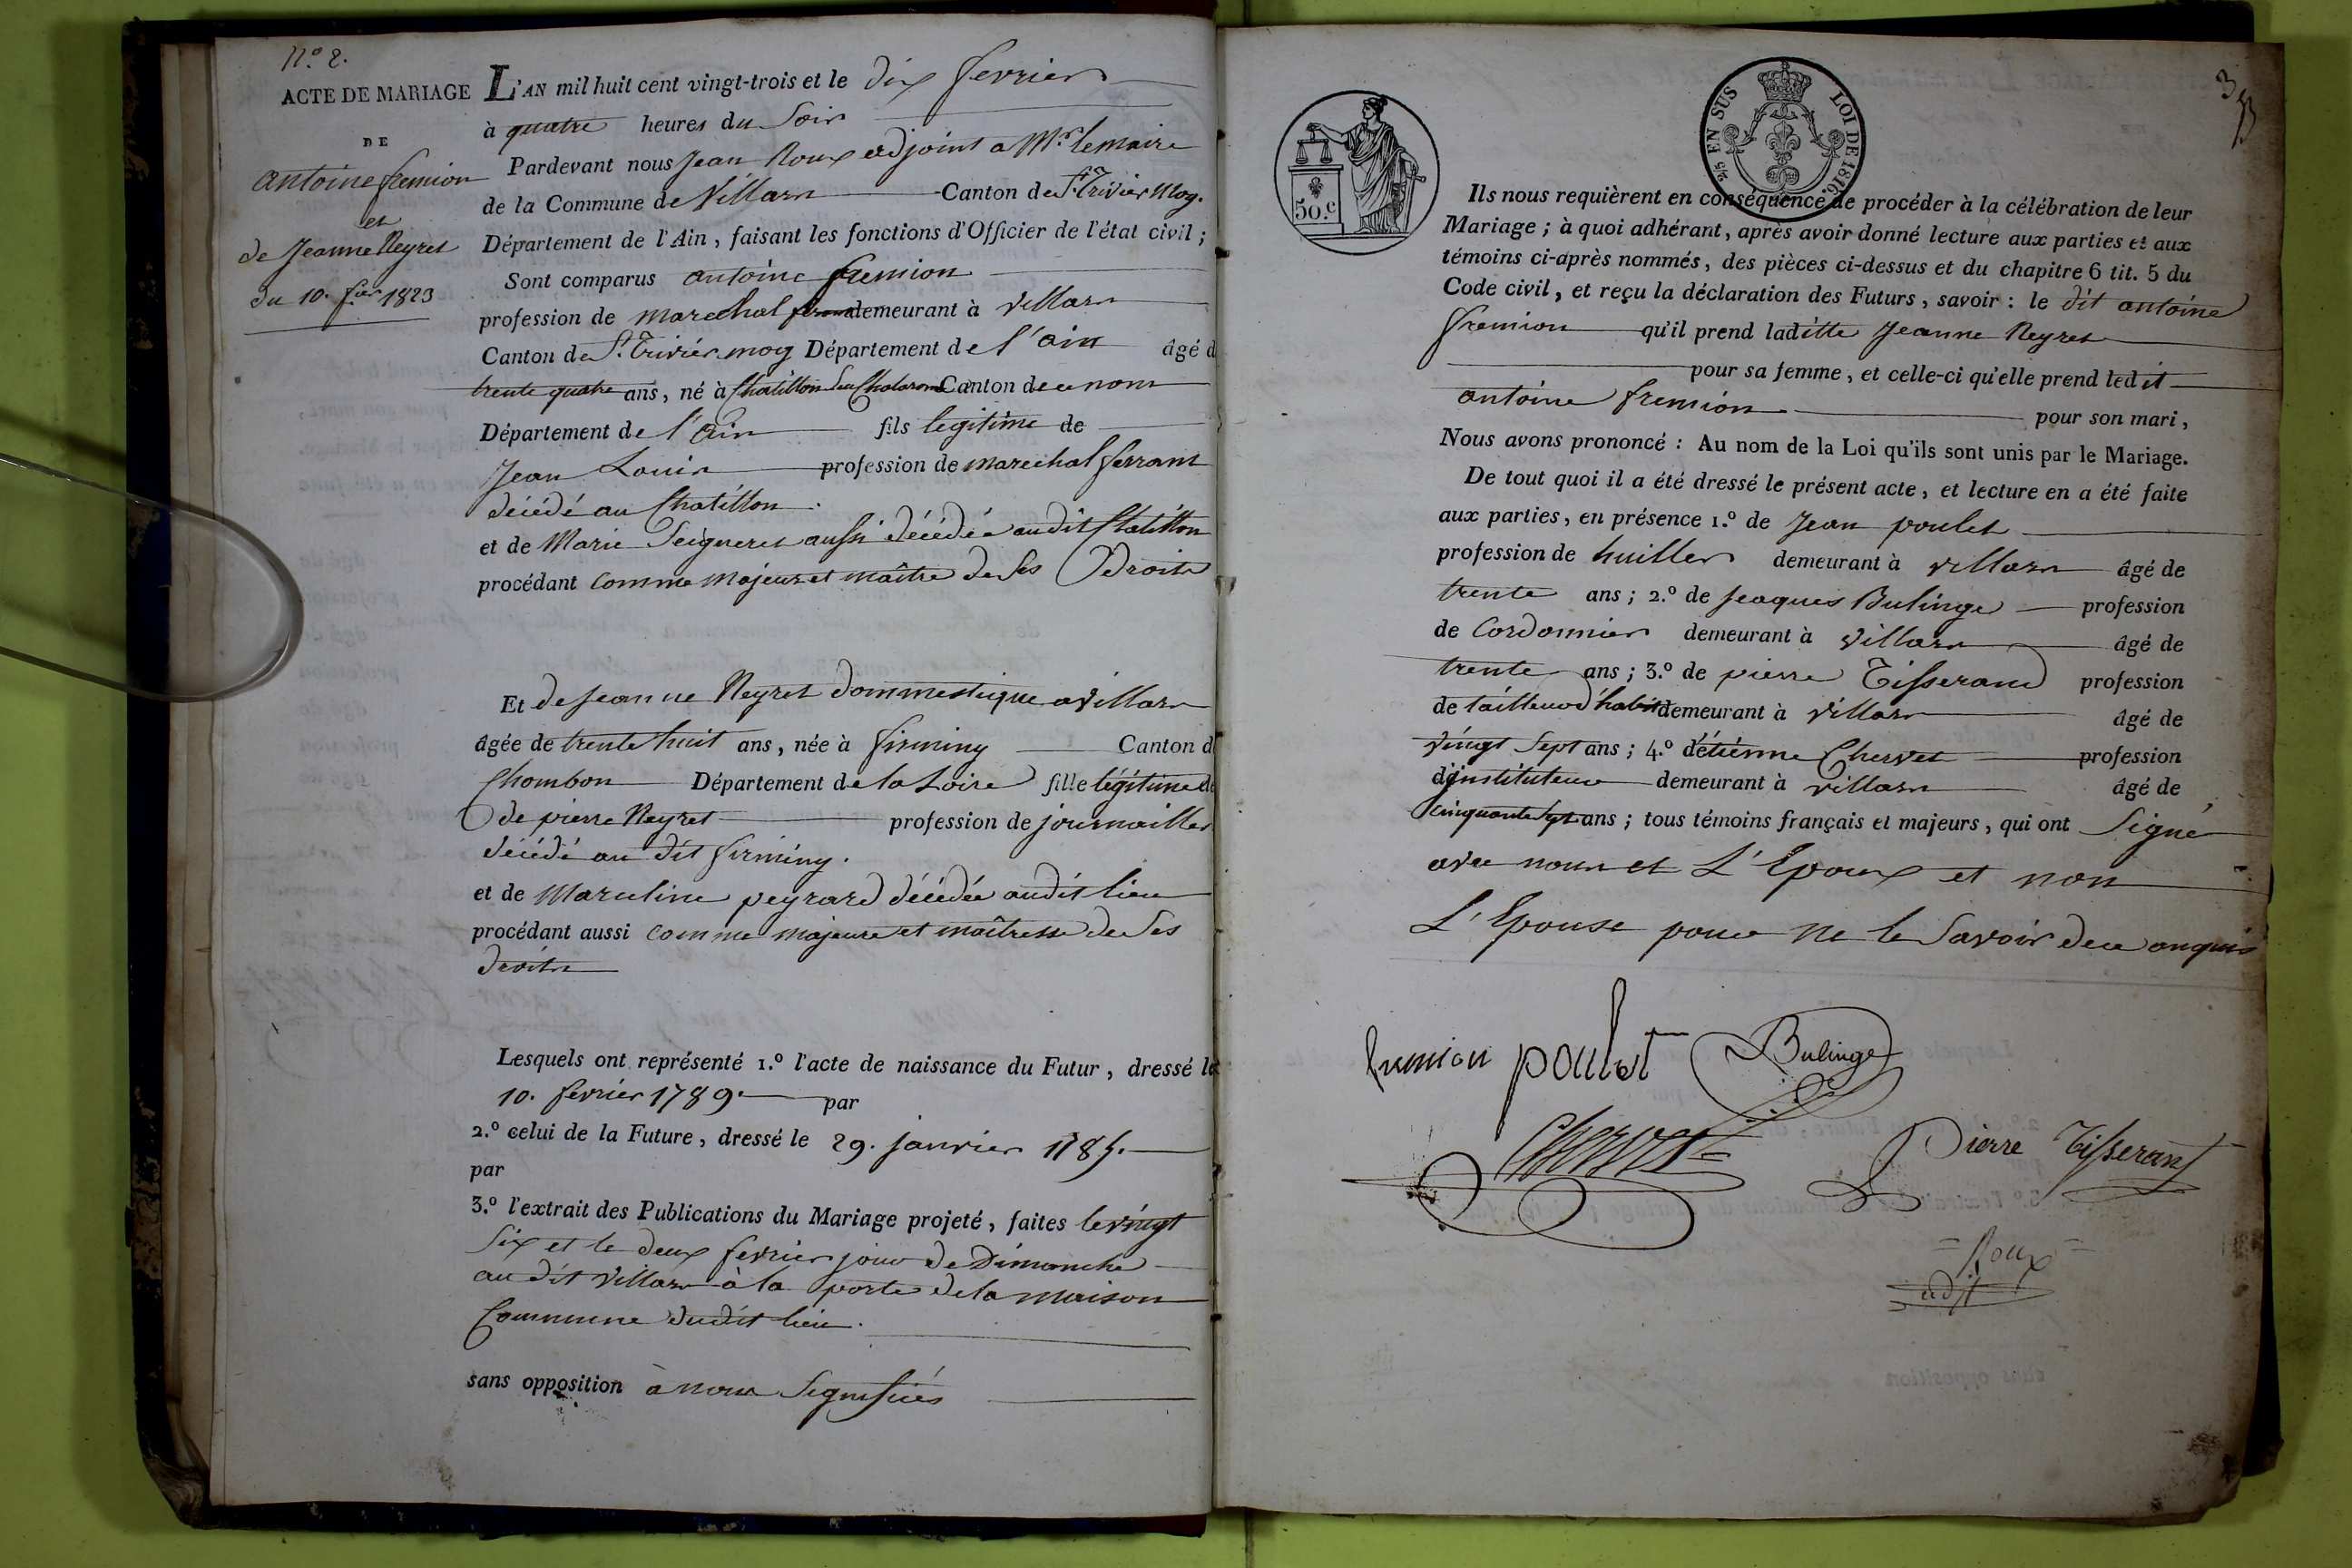 N.º 2.
ACTE DE MARIAGE
DE
antoine fremion
et
de Jeanne Neyret
du 10. fer 1823
L'AN mil huit cent vingt-trois et le dix fevrier
à quatre heures du Soir
Pardevant nous Jean Roux adjoint a Mr. lemaire
de la Commune de Villars Canton de St. Trivier Moy.
Département de l'Ain, faisant les fonctions d'Officier de l'état civil ;
Sont comparus antoine fremion
profession de marechal demeurant à villars
Canton de St. Trivier moy Département de l'ain âgé d
trente quatre ans, né à Chatillon Canton de ce nom
Département de l'ain fils legitime de
Jean Louis profession de marechal ferrant
décédé au Chatillon.
et de Marie Seigneret aussi décédée audit Chatillon
procédant comme majeur et maître de ses Droits
Et de Jeanne Neyret dommestique a villars
âgée de trente huit ans, née à firminy Canton d
Chombon Département de la Loire fille légitime de
de pierre Neyret profession de journaillier
décédé au dit firminy.
et de Marceline peyrard décédée audit lieu
procédant aussi comme majeure et maîtresse de Ses
droits
Lesquels ont représenté 1.º l'acte de naissance du Futur, dressé le
10. fevrier 1789. par
2.º celui de la Future, dressé le 29. janvier 1785.
par
3.º l'extrait des Publications du Mariage projeté, faites le vingt
Six et le deux fevrier jour de Dimanche
au dit villars à la porte de la maison
Commune dudit lieu.
sans opposition à nous Signifiées
3
50.c
2/5 EN SUS LOI DE 1816.
Ils nous requièrent en conséquence de procéder à la célébration de leur
Mariage ; à quoi adhérant, après avoir donné lecture aux parties et aux
témoins ci-après nommés, des pièces ci-dessus et du chapitre 6 tit. 5 du
Code civil, et reçu la déclaration des Futurs, savoir : le dit antoine
fremion qu'il prend laditte Jeanne Neyret
pour sa femme, et celle-ci qu'elle prend ledit
antoine fremion pour son mari,
Nous avons prononcé : Au nom de la Loi qu'ils sont unis par le Mariage.
De tout quoi il a été dressé le présent acte, et lecture en a été faite
aux parties, en présence 1.º de Jean poulet
profession de huillier demeurant à villars âgé de
trente ans ; 2.º de Jeaques Bulinge profession
de Cordonnier demeurant à villars âgé de
trente ans ; 3.º de pierre Tisserand profession
de tailleur d'habit demeurant à villars âgé de
vingt Sept ans ; 4.º d'étiénne Chervet profession
d'instituteur demeurant à villars âgé de
cinquante Sept ans ; tous témoins français et majeurs, qui ont Signé
avec nous et L'Epoux et non
L'Epouse pour ne le Savoir de ce enquis
fremion poulet Bulinge
Chervet Pierre Tisserant
Roux
adjt